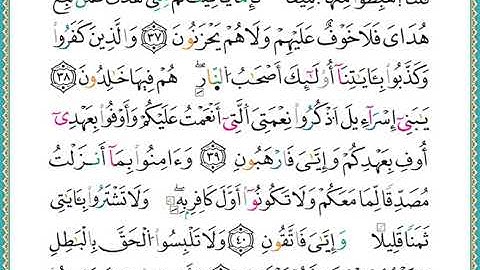 قُلْنَا اهْبِطُوا مِنْهَا جَمِيعًا فَإِمَّا يَأْتِيَنَّكُم مِّنِّي هُدًى فَمَن تَبِعَ
هُدَايَ فَلَا خَوْفٌ عَلَيْهِمْ وَلَا هُمْ يَحْزَنُونَ ٣٧ وَالَّذِينَ كَفَرُوا
وَكَذَّبُوا بِـَٔايَـٰتِنَا أُوْلَـٰٓئِكَ أَصْحَـٰبُ النَّارِ هُمْ فِيهَا خَـٰلِدُونَ ٣٨
يَـٰبَنِىٓ إِسْرَآءِيلَ اذْكُرُوا نِعْمَتِىَ الَّتِىٓ أَنْعَمْتُ عَلَيْكُمْ وَأَوْفُوا بِعَهْدِىٓ
أُوفِ بِعَهْدِكُمْ وَإِيَّـٰىَ فَارْهَبُونِ ٣٩ وَءَامِنُوا بِمَآ أَنزَلْتُ
مُصَدِّقًا لِّمَا مَعَكُمْ وَلَا تَكُونُوٓا أَوَّلَ كَافِرٍۭ بِهِۦ وَلَا تَشْتَرُوا بِـَٔايَـٰتِى
ثَمَنًا قَلِيلًا وَإِيَّـٰىَ فَاتَّقُونِ ٤٠ وَلَا تَلْبِسُوا الْحَقَّ بِالْبَـٰطِلِ